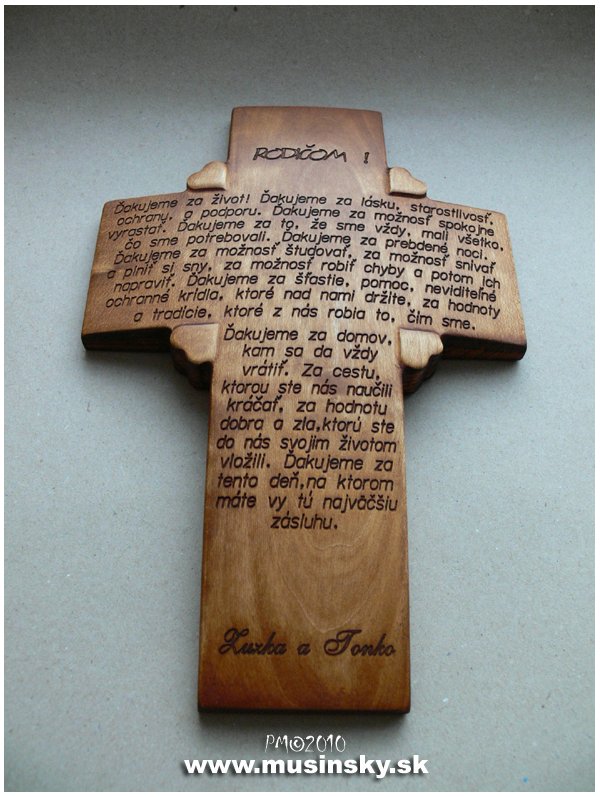 RODIČOM !
Ďakujeme za život! Ďakujeme za lásku, starostlivosť,
ochrany, a podporu. Ďakujeme za možnosť spokojne
vyrastať. Ďakujeme za to, že sme vždy, mali všetko,
čo sme potrebovali. Ďakujeme za prebdené noci.
Ďakujeme za možnosť študovať, za možnosť snívať
a plniť si sny, za možnosť robiť chyby a potom ich
napraviť. Ďakujeme za šťastie, pomoc, neviditeľné
ochranné krídla, ktoré nad nami držíte, za hodnoty
a tradície, ktoré z nás robia to, čím sme.
Ďakujeme za domov,
kam sa da vždy
vrátiť. Za cestu,
ktorou ste nás naučili
kráčať, za hodnotu
dobra a zla,ktorú ste
do nás svojim životom
vložili. Ďakujeme za
tento deň,na ktorom
máte vy tú najväčšiu
zásluhu.
Zuzka a Tonko
PM©2010
www.musinsky.sk